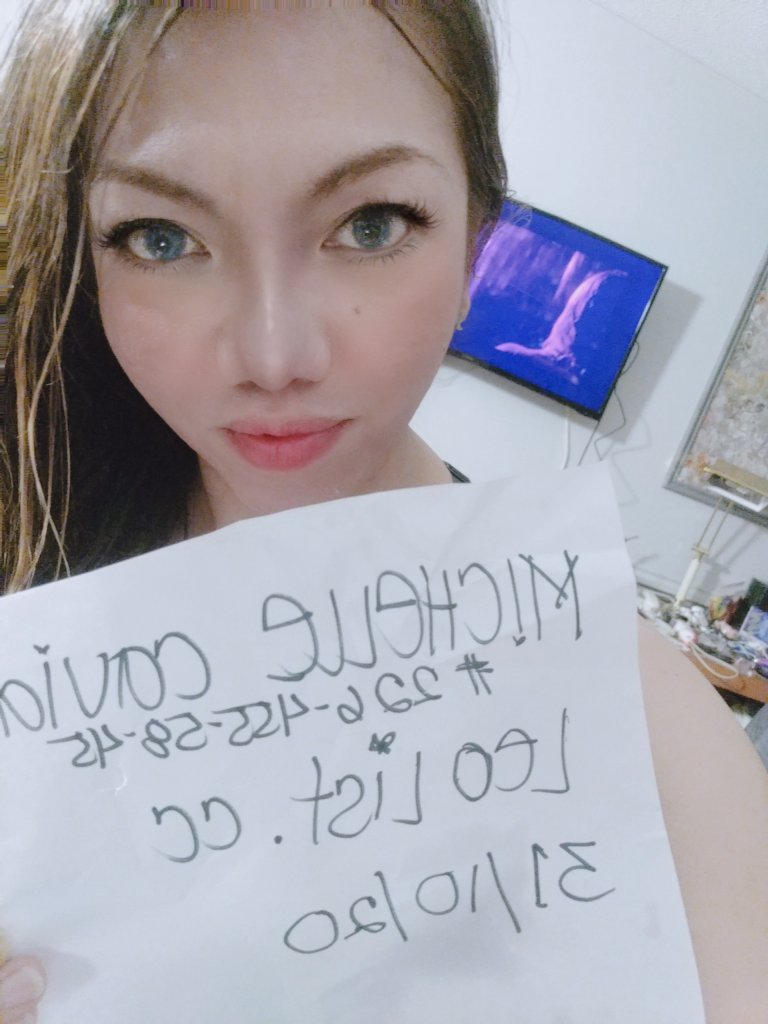 MicHeLLe
#226-455-58-45
LeoList.cc
31/10/20